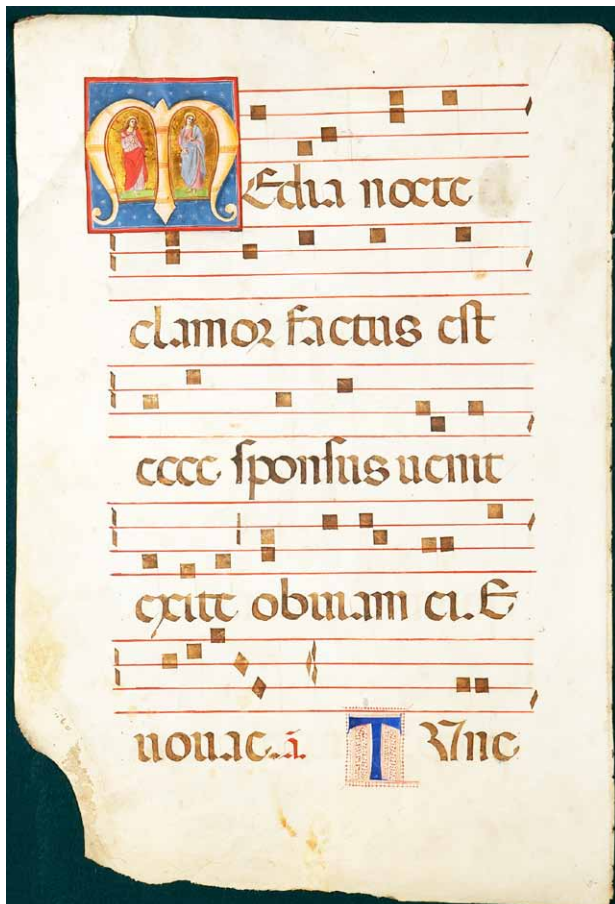 MEdia nocte
clamor factus est
ecce sponsus uenit
exite obuiam ei. E
uouae. a.
TUnc